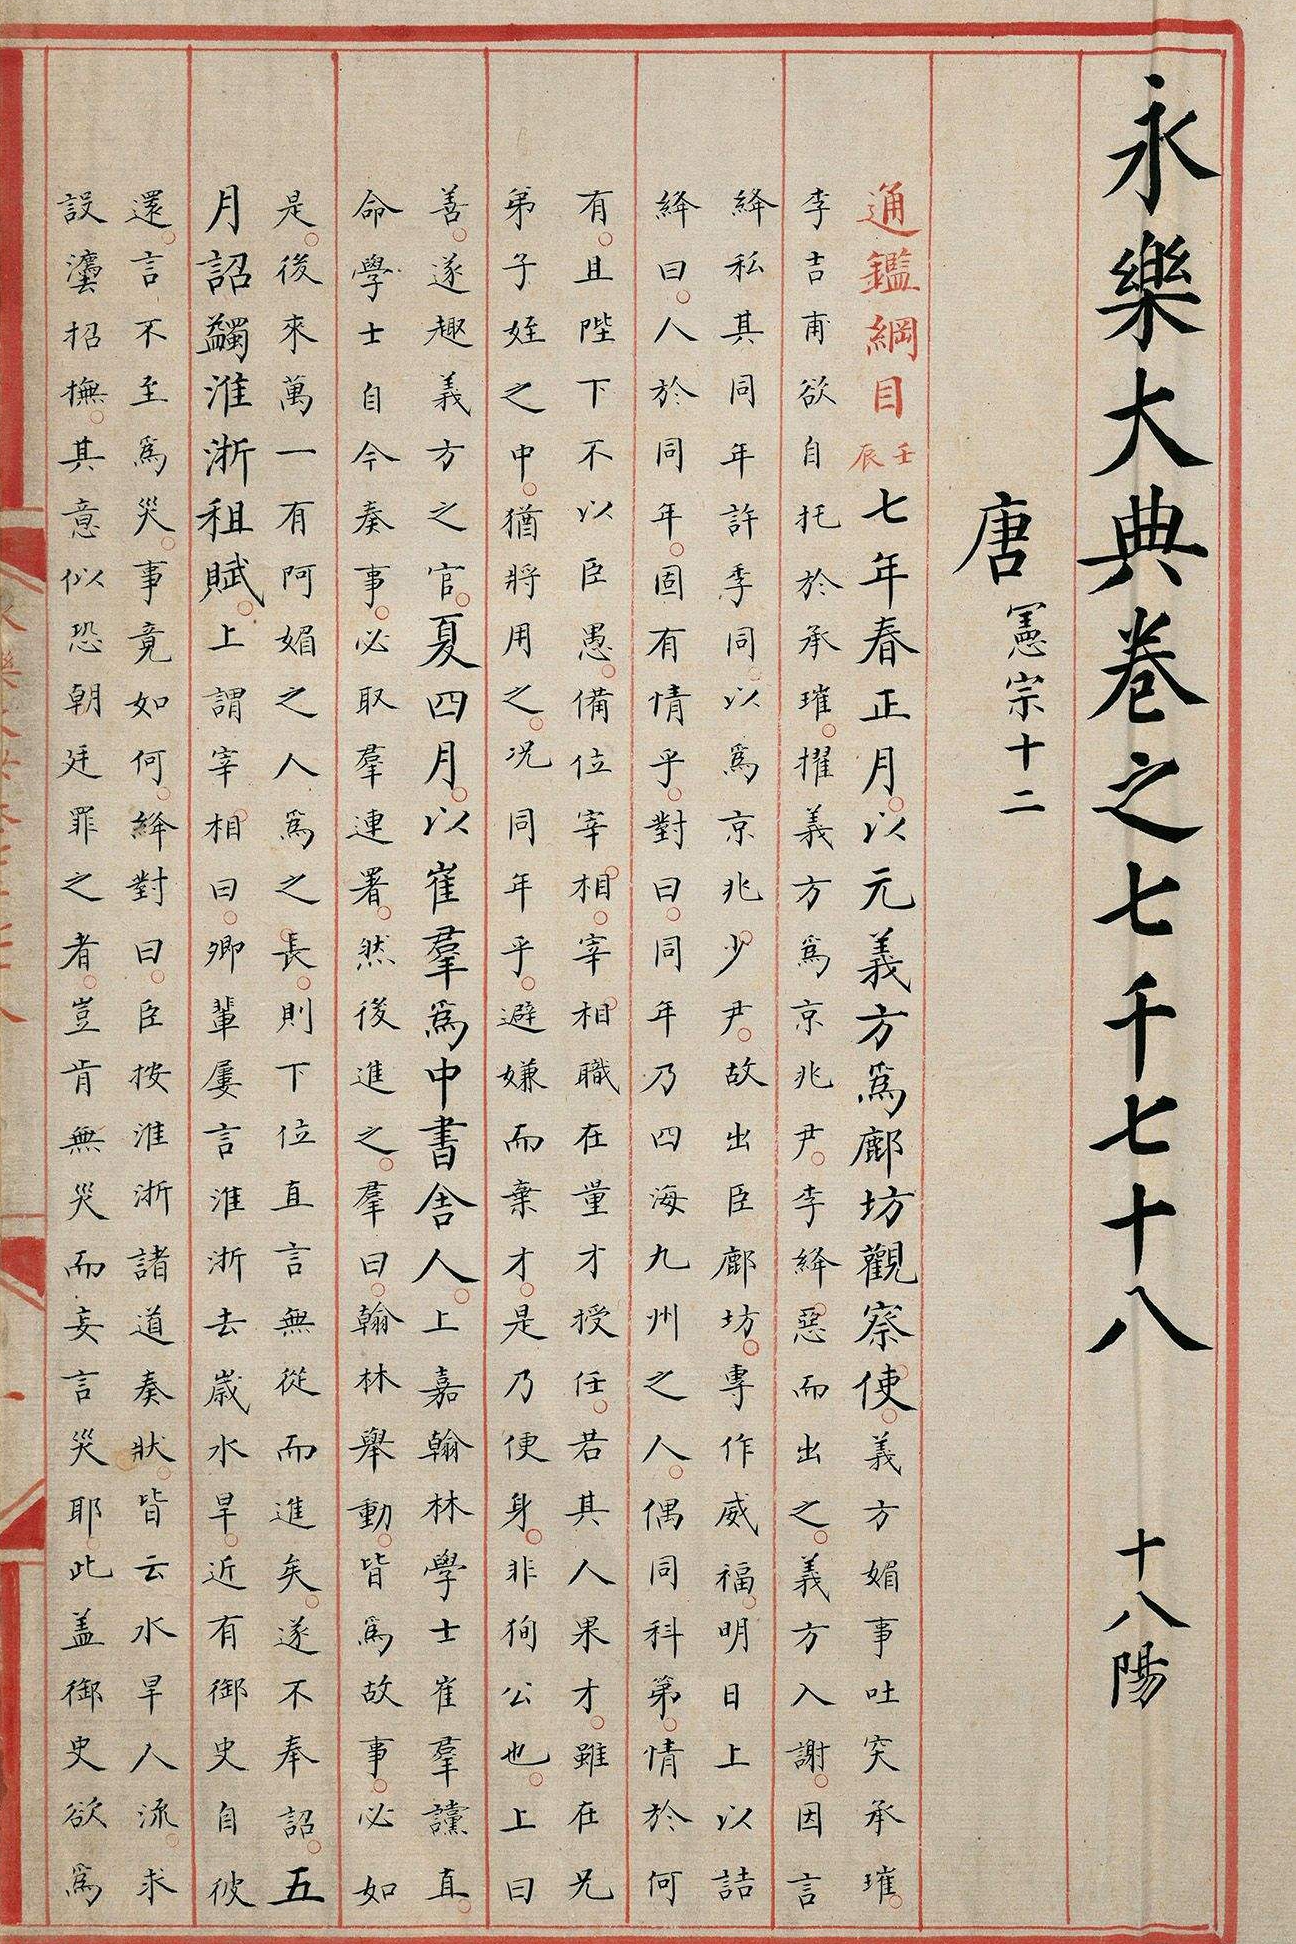 永樂大典卷之七千七十八 十八陽
唐 憲宗十二
通鑑綱目 壬辰 七年春正月以元義方爲鄜坊觀察使義方媚事吐突承璀
李吉甫欲自托於承璀擢義方爲京兆尹李絳惡而出之義方入謝因言
絳私其同年許季同以爲京兆少尹故出臣鄜坊專作威福明日上以詰
絳曰人於同年固有情乎對曰同年乃四海九州之人偶同科第情於何
有且陛下不以臣愚備位宰相宰相職在量才授任若其人果才雖在兄
弟子姪之中猶將用之况同年乎避嫌而棄才是乃便身非狥公也上曰
善遂趣義方之官夏四月以崔羣爲中書舍人上嘉翰林學士崔羣讜直
命學士自今奏事必取羣連署然後進之羣曰翰林舉動皆爲故事必如
是後來萬一有阿媚之人爲之長則下位直言無從而進矣遂不奉詔五
月詔蠲淮浙租賦上謂宰相曰卿輩屢言淮浙去歲水旱近有御史自彼
還言不至爲災事竟如何絳對曰臣按淮浙諸道奏狀皆云水旱人流求
設灋招撫其意似恐朝廷罪之者豈肯無災而妄言災耶此盖御史欲爲